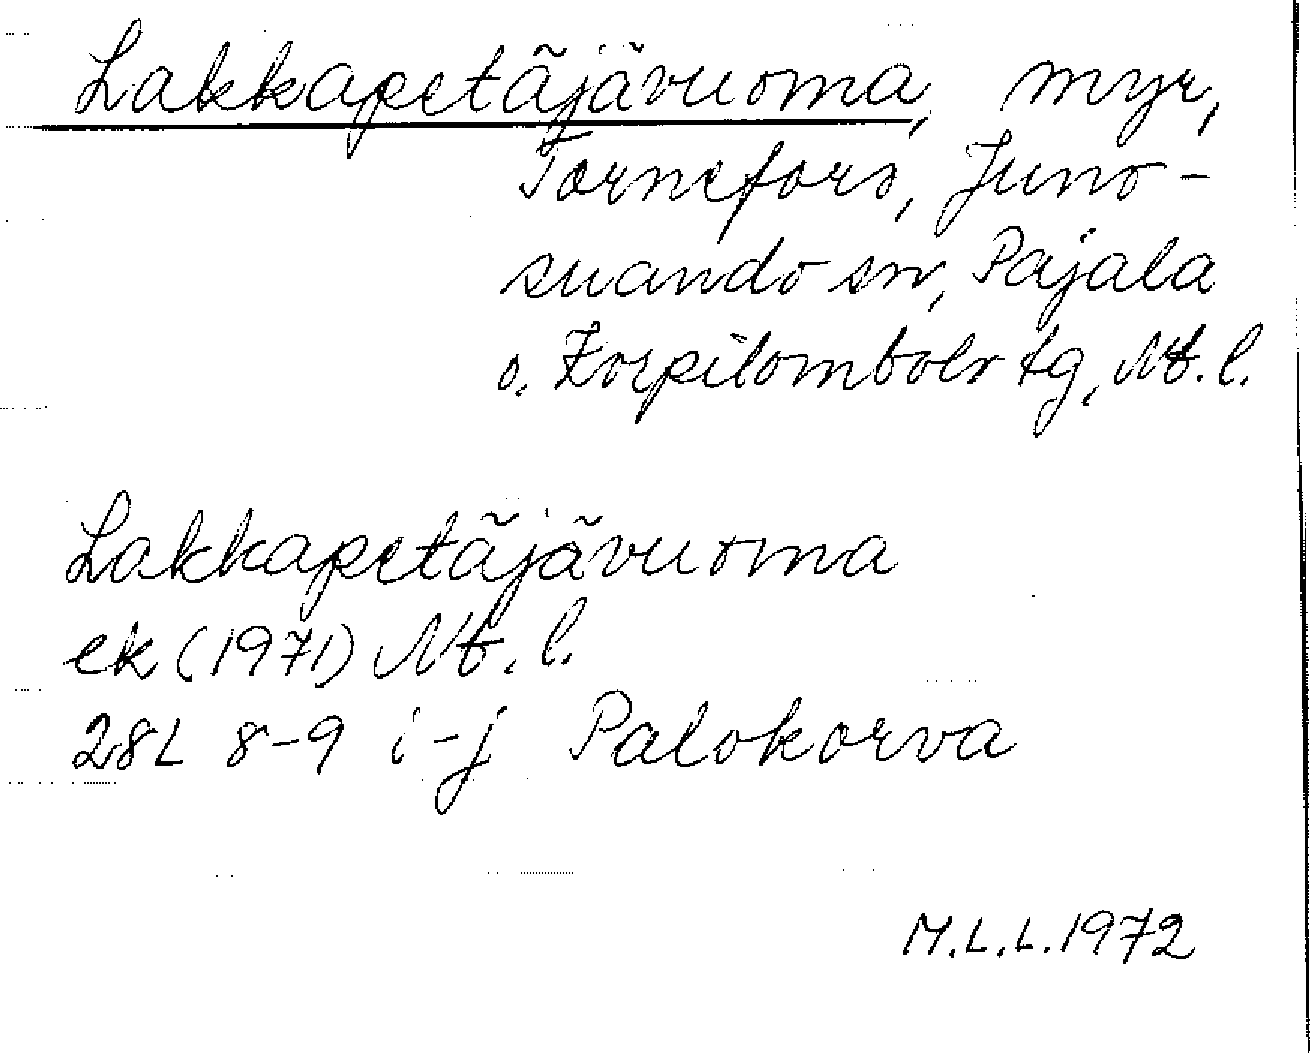 Lakkapetäjävuoma, myr,
Tornefors, Juno-
suando sn, Pajala
o. Korpilombolo tg, Nb. l.
Lakkapetäjävuoma
ek (1971) Nb. l.
28L 8-9 i-j Palokorva
M.L.L. 1972